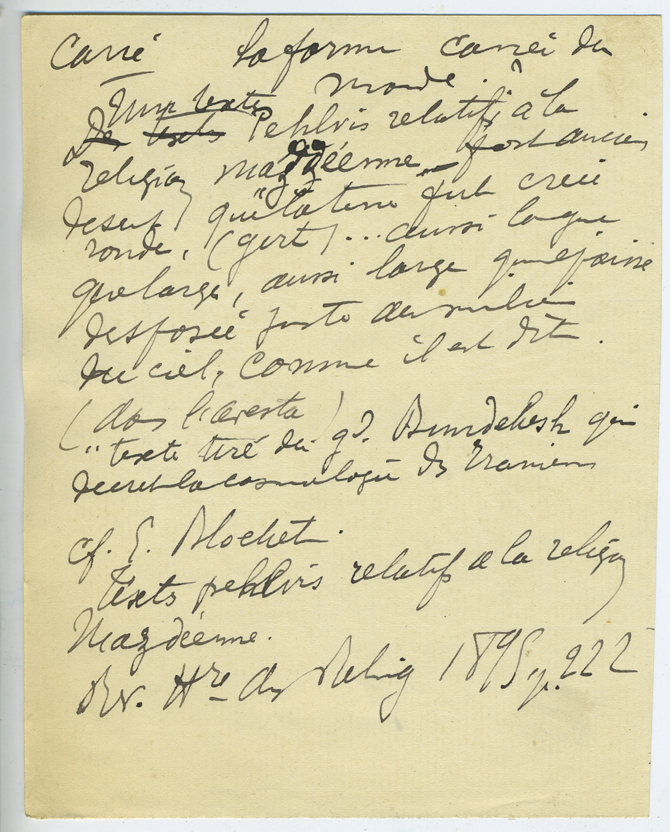 Carré la forme carrée du
monde ?
Un texte
Des texts Pehlvis relatifs à la
religion mazdéenne fort ancien
"que la terre fut créée
ronde, (gert) ... aussi longue
que large, aussi large que
juste au milieu
du ciel, comme il est dit.
(dans l'Avesta)
" texte tiré du gd. Bundehesh qui
décrit la cosmologie des Iraniens
cf. E. Blochet.
Texts pehlvis relatifs a la religion
Mazdéenne.
Rev. Hre des Relig 1895 p. 222